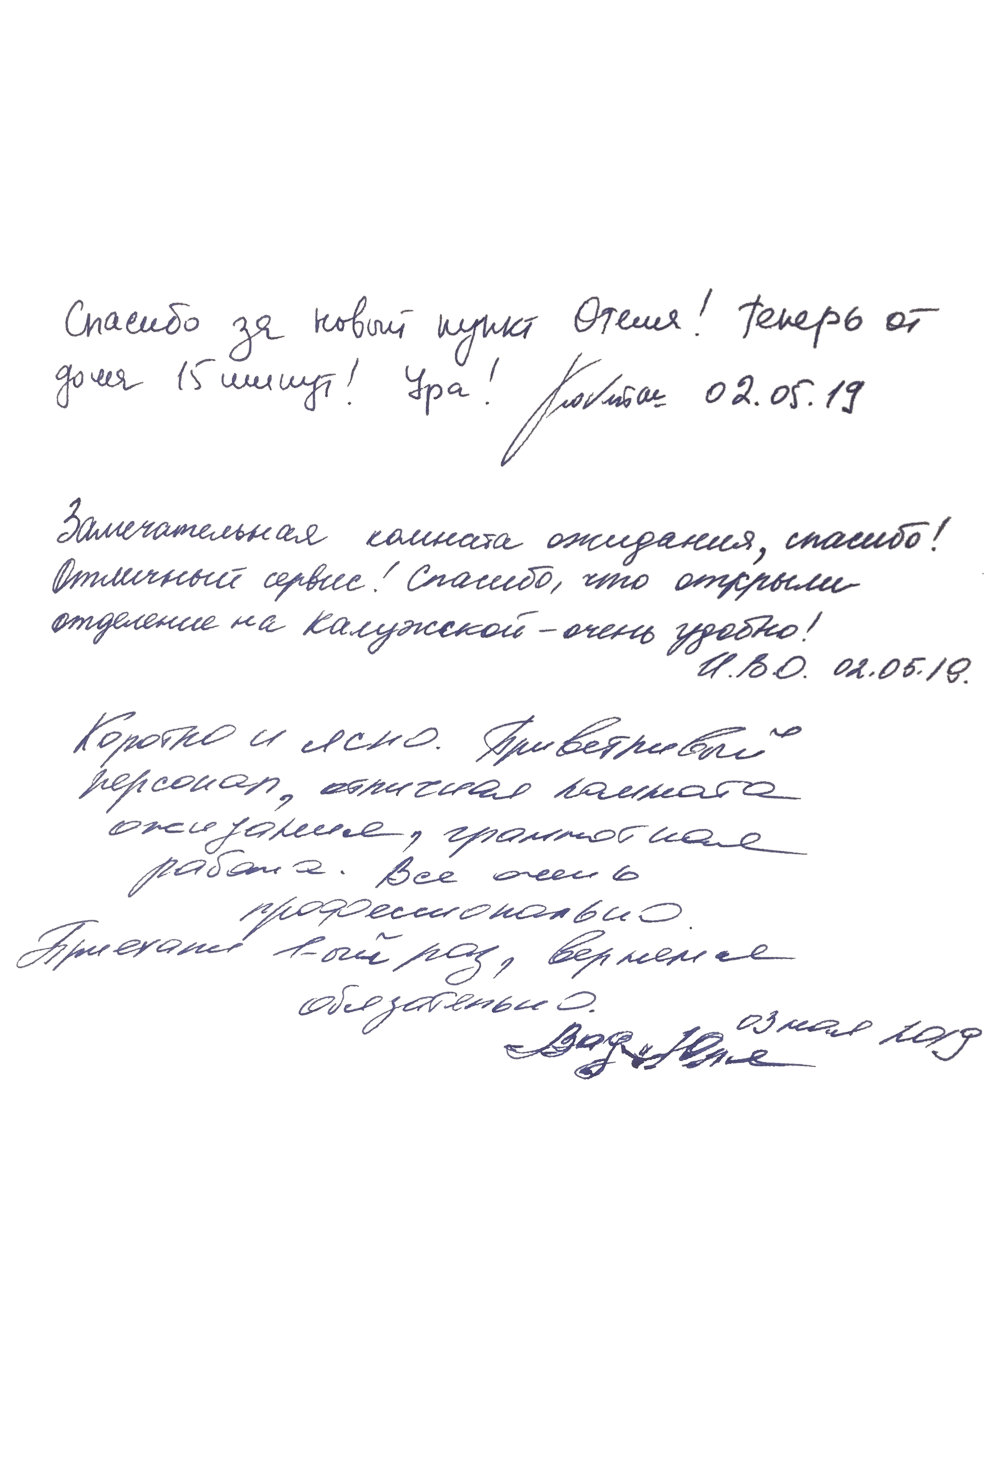 Спасибо за новый пункт Отеля! Теперь от
дома 15 минут! Ура! 02.05.19
Замечательная комната ожидания, спасибо!
Отличный сервис! Спасибо, что открыли
отделение на Калужской – очень удобно!
И.В.О. 02.05.19.
Коротко и ясно. Приветливый
персонал, отличная комната
ожидания, грамотная
работа. Все очень
профессионально.
Приехали 1-ый раз, вернемся
обязательно.
03 мая 2019
Вад и Юля